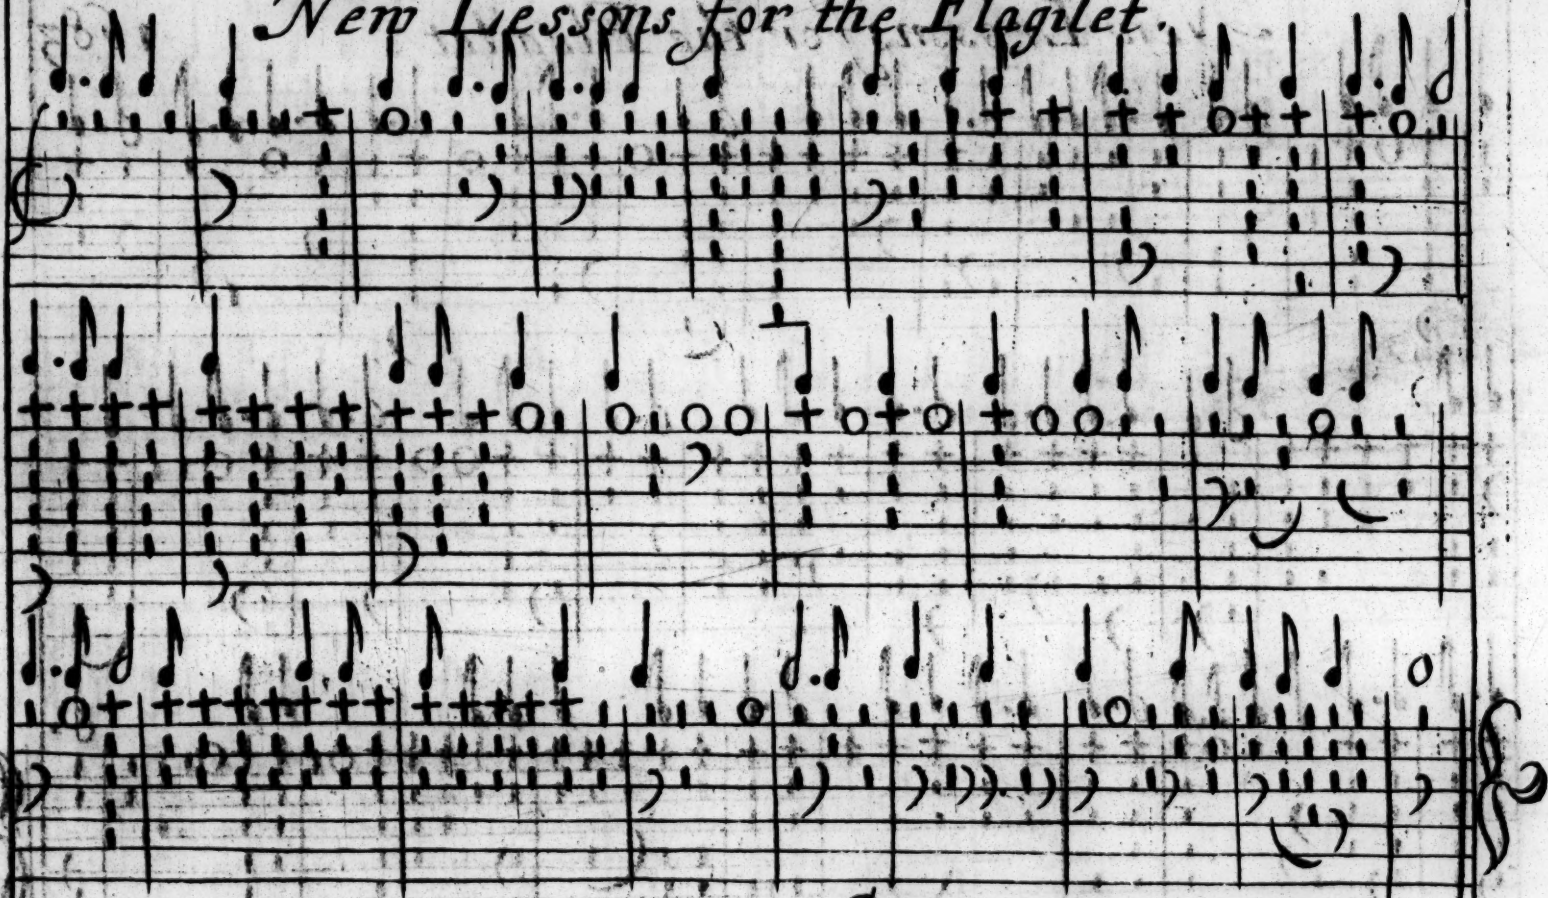 New Lessons for the Flagilet.